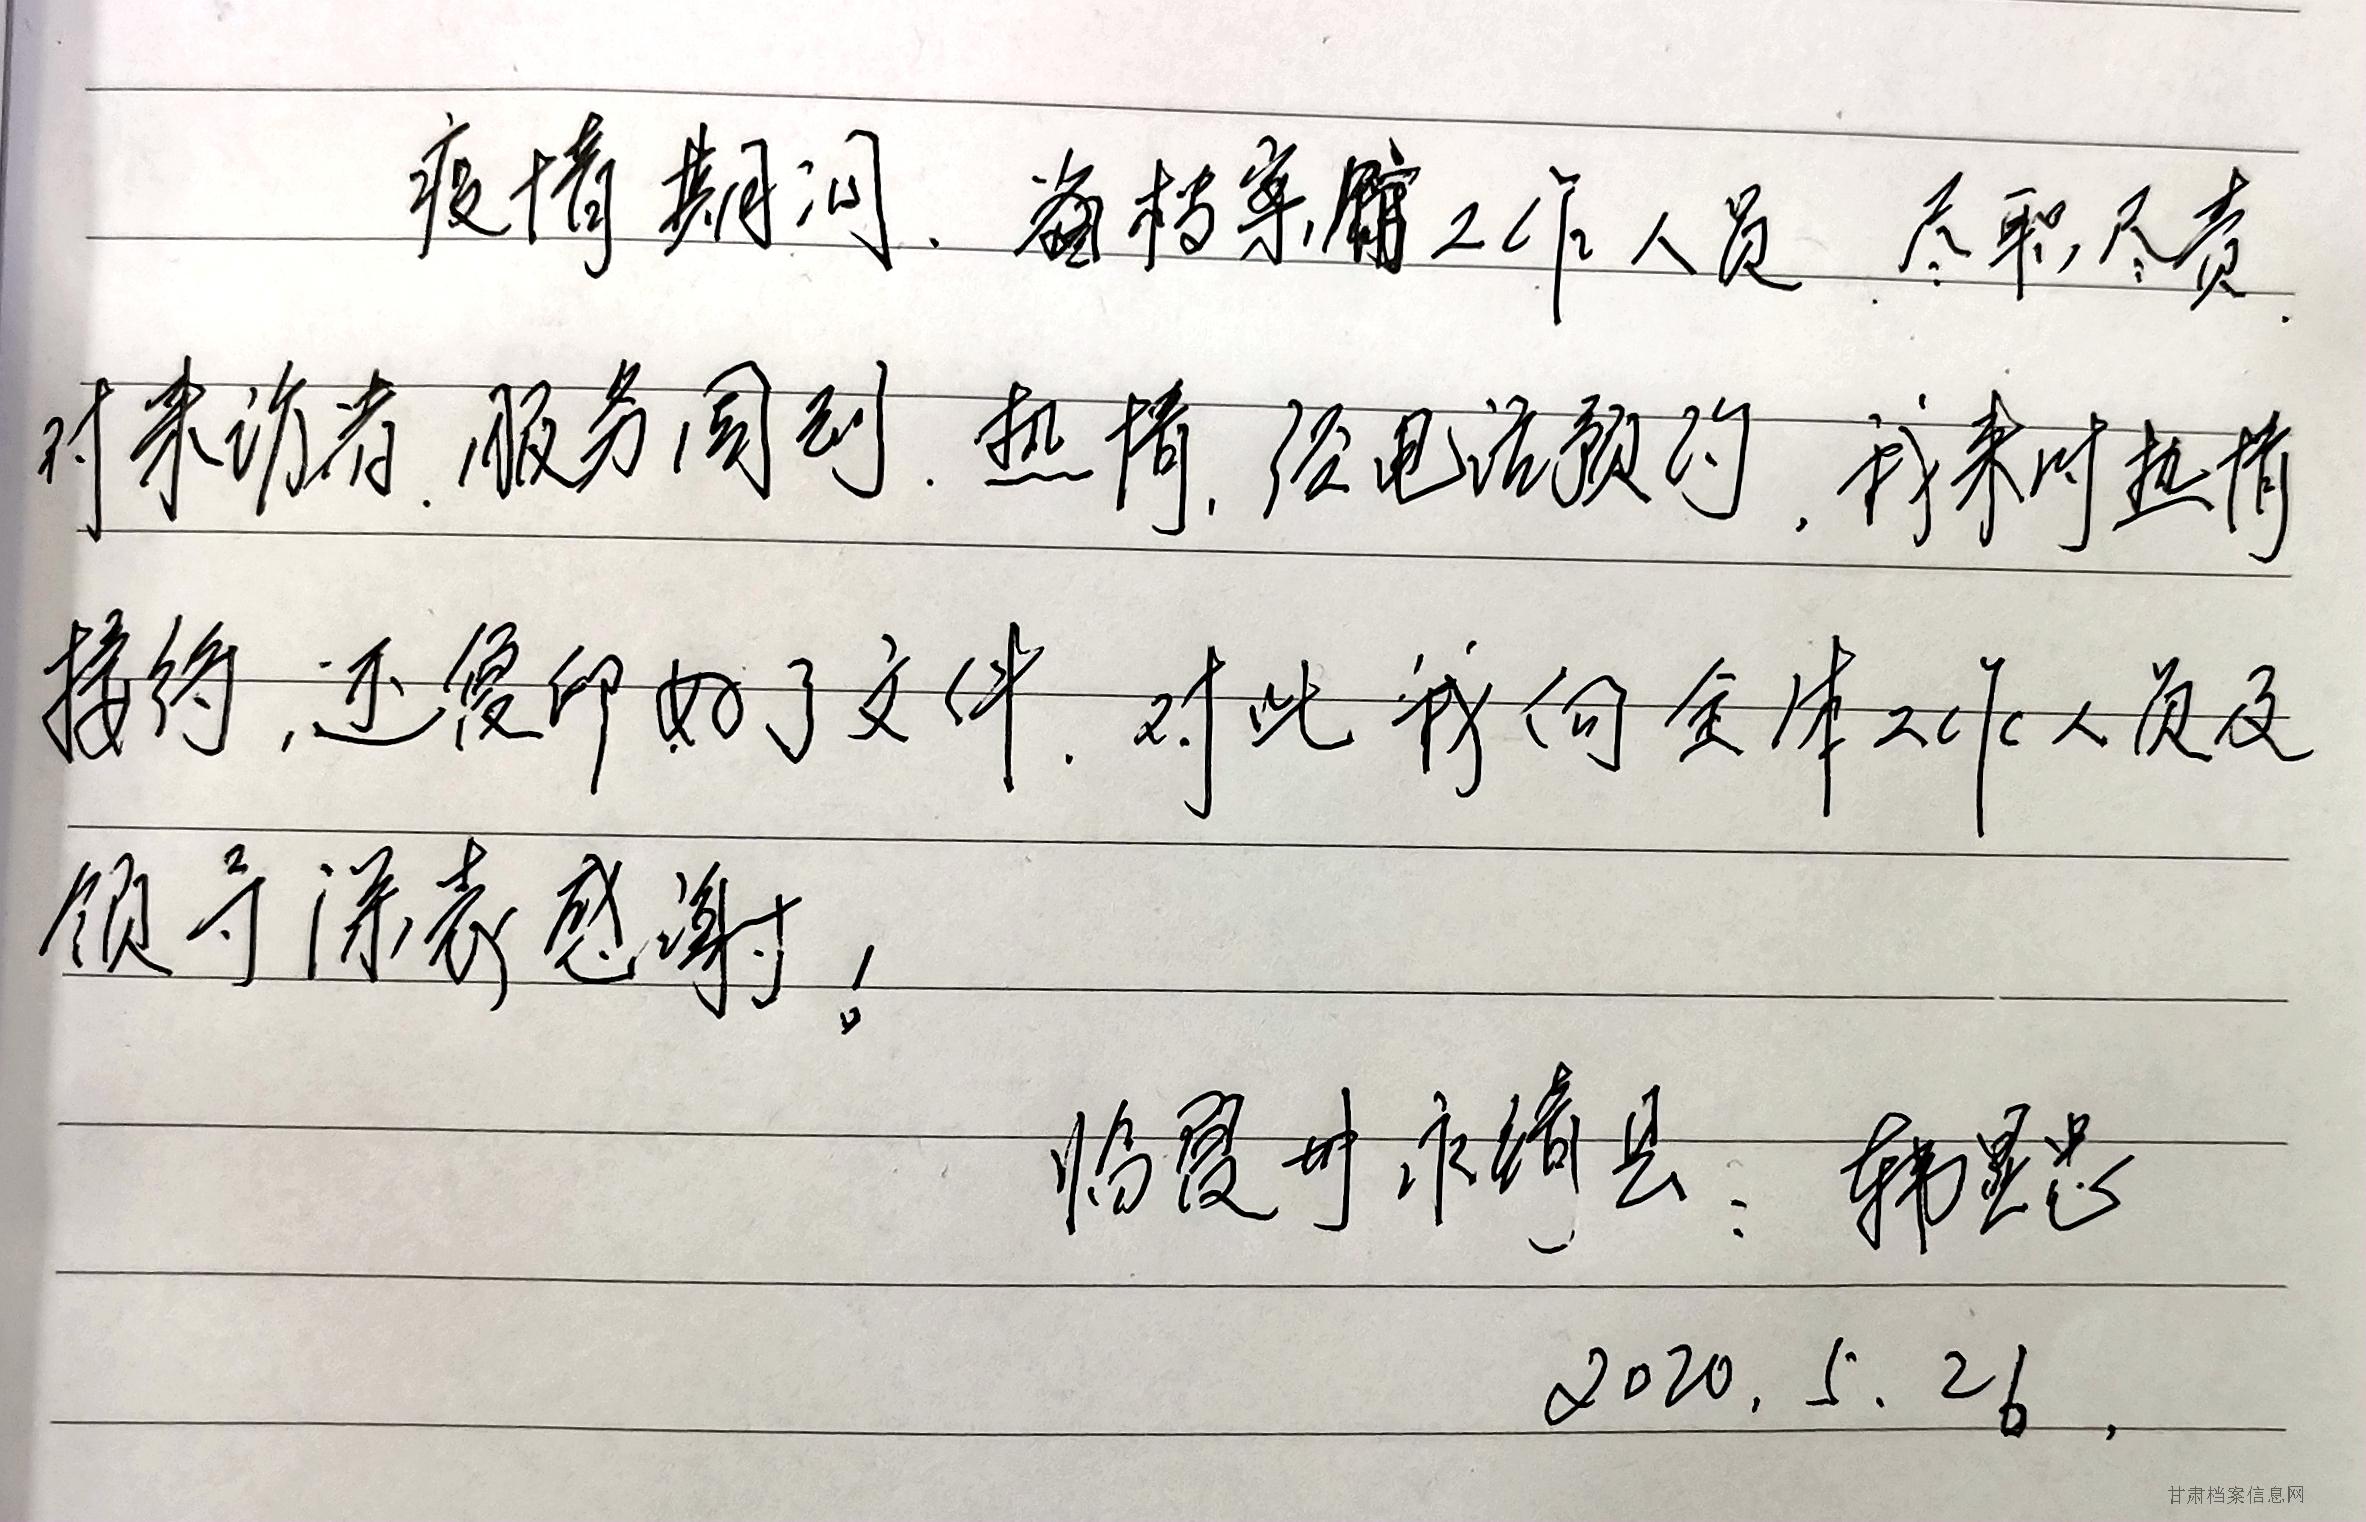 疫情期间、省档案馆工作人员、尽职尽责.
对来访者.服务周到.热情,经电话预约,我来时热情
接约,还复印好了文件.对此我向全体工作人员及
领导深表感谢!
临夏州永靖县:韩显忠
2020.5.26.
甘肃档案信息网